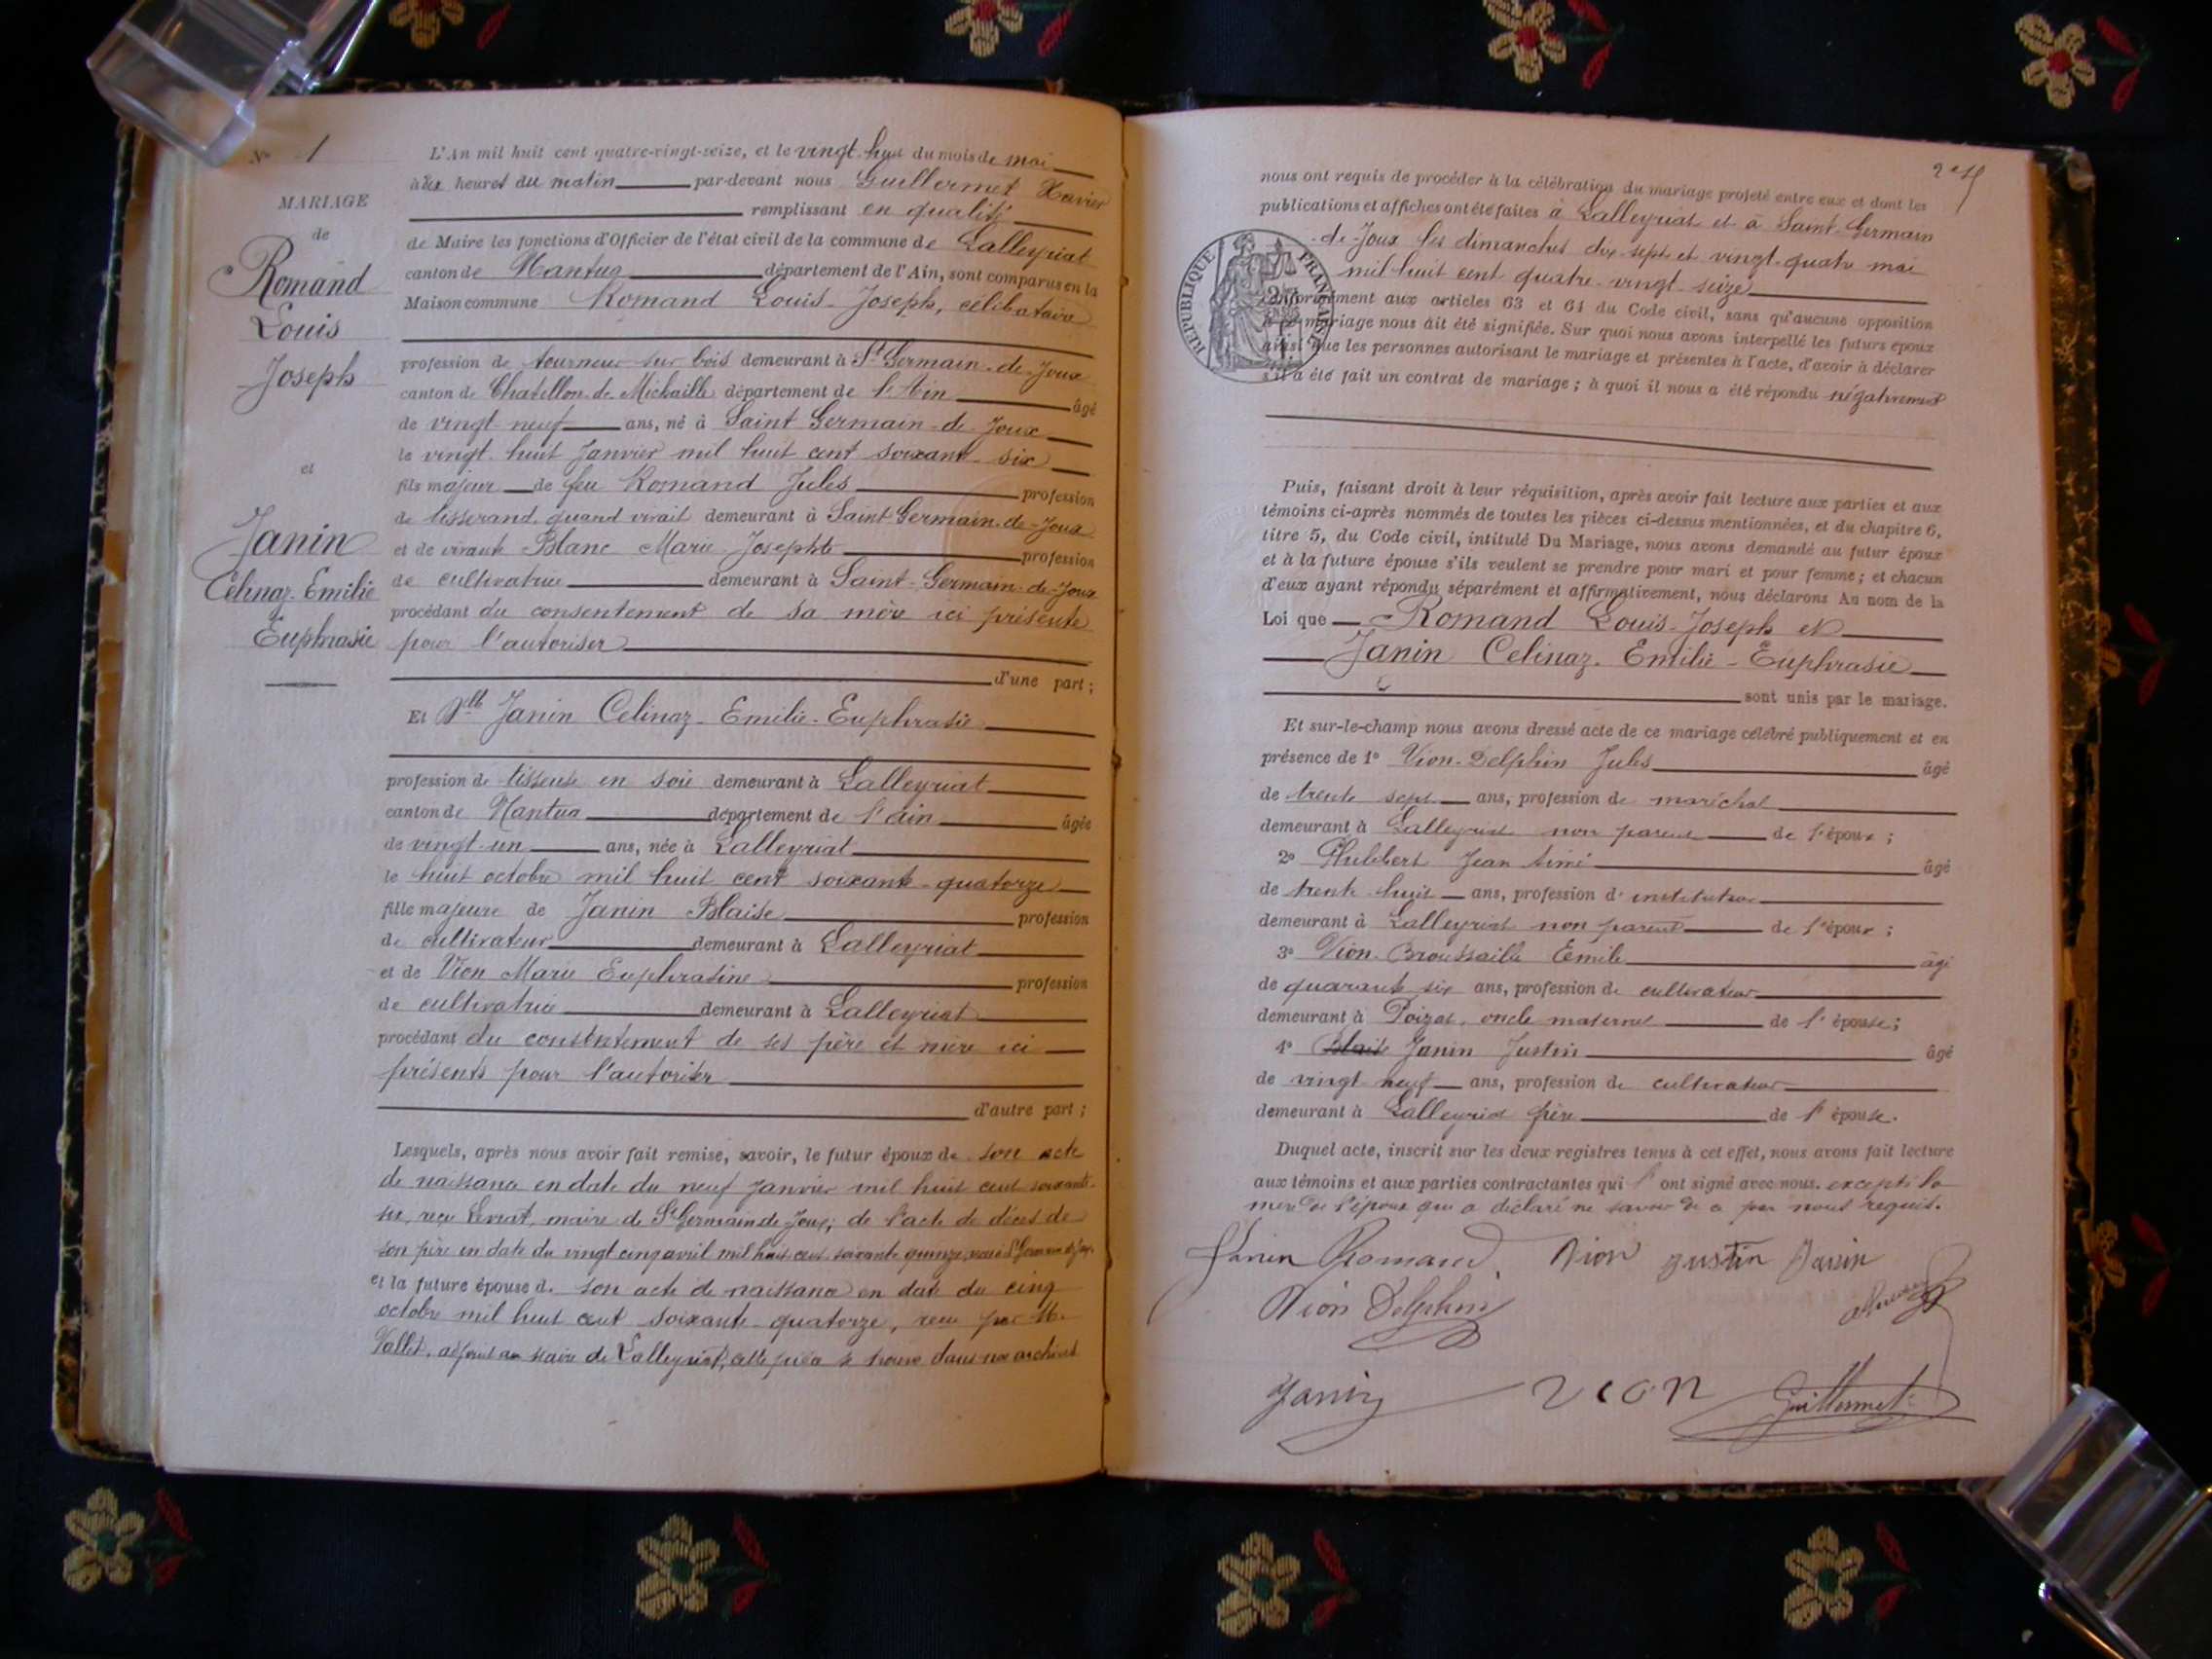 N° 1
MARIAGE
de
Romand
Louis
Joseph
et
Janin
Celinaz-Emilie
Euphrasie
L'An mil huit cent quatre-vingt-seize, et le vingt-huit du mois de mai
à dix heures du matin par-devant nous Guillermet Xavier
remplissant en qualité
de Maire les fonctions d'Officier de l'état civil de la commune de Lalleyriat
canton de Nantua département de l'Ain, sont comparus en la
Maison commune Romand Louis-Joseph, célibataire
profession de tourneur sur bois demeurant à St Germain-de-Joux
canton de Chatillon-de-Michaille département de l'Ain âgé
de vingt-neuf ans, né à Saint Germain-de-Joux
le vingt-huit Janvier mil huit cent soixante-six
fils majeur de feu Romand Jules profession
de tisserand quand vivait demeurant à Saint Germain-de-Joux
et de vivante Blanc Marie-Josephte profession
de cultivatrice demeurant à Saint-Germain-de-Joux
procédant du consentement de sa mère ici présente
pour l'autoriser
d'une part ;
Et Dlle Janin Celinaz-Emilie-Euphrasie
profession de tisseuse en soie demeurant à Lalleyriat
canton de Nantua département de l'ain âgée
de vingt-un ans, née à Lalleyriat
le huit octobre mil huit cent soixante-quatorze
fille majeure de Janin Blaise profession
de cultivateur demeurant à Lalleyriat
et de Vion Marie Euphrasine profession
de cultivatrice demeurant à Lalleyriat
procédant du consentement de ses père et mère ici
présents pour l'autoriser
d'autre part ;
Lesquels, après nous avoir fait remise, savoir, le futur époux de son acte
de naissance en date du neuf Janvier mil huit cent soixante-
six, reçu maire de St Germain de Joux, de l'acte de décès de
son père en date du vingt cinq avril mil huit cent soixante quinze
et la future épouse de son acte de naissance en date du cinq
octobre mil huit cent soixante-quatorze, reçu par M.
Vallet, adjoint au maire de Lalleyriat, cette pièce se trouve dans nos archives
nous ont requis de procéder à la célébration du mariage projeté entre eux et dont les
publications et affiches ont été faites à Lalleyriat et à Saint-Germain
de-Joux les dimanches dix-sept et vingt-quatre mai
mil huit cent quatre-vingt-seize
REPUBLIQUE FRANÇAISE
conformément aux articles 63 et 64 du Code civil, sans qu'aucune opposition
à ce mariage nous ait été signifiée. Sur quoi nous avons interpellé les futurs époux
ainsi que les personnes autorisant le mariage et présentes à l'acte, d'avoir à déclarer
s'il a été fait un contrat de mariage ; à quoi il nous a été répondu négativement
Puis, faisant droit à leur réquisition, après avoir fait lecture aux parties et aux
témoins ci-après nommés de toutes les pièces ci-dessus mentionnées, et du chapitre 6,
titre 5, du Code civil, intitulé Du Mariage, nous avons demandé au futur époux
et à la future épouse s'ils veulent se prendre pour mari et pour femme ; et chacun
d'eux ayant répondu séparément et affirmativement, nous déclarons Au nom de la
Loi que Romand Louis-Joseph et
Janin Celinaz-Emilie-Euphrasie
sont unis par le mariage.
Et sur-le-champ nous avons dressé acte de ce mariage célébré publiquement et en
présence de 1° Vion-Delphin Jules âgé
de trente sept ans, profession de maréchal
demeurant à Lalleyriat non parent de l'époux ;
2° Philibert Jean Aimé âgé
de trente-huit ans, profession d'instituteur
demeurant à Lalleyriat non parent de l'époux ;
3° Vion-Broussaille Emile âgé
de quarante six ans, profession de cultivateur
demeurant à Poizat, oncle maternel de l'épouse ;
4° Blaise Janin Justin âgé
de vingt neuf ans, profession de cultivateur
demeurant à Lalleyriat frère de l'épouse.
Duquel acte, inscrit sur les deux registres tenus à cet effet, nous avons fait lecture
aux témoins et aux parties contractantes qui l'ont signé avec nous. excepté la
mère de l'époux qui a déclaré ne savoir de ce par nous requis.
Janin Romand Vion Justin Janin
Vion Delphin
Janin Vion Guillermet